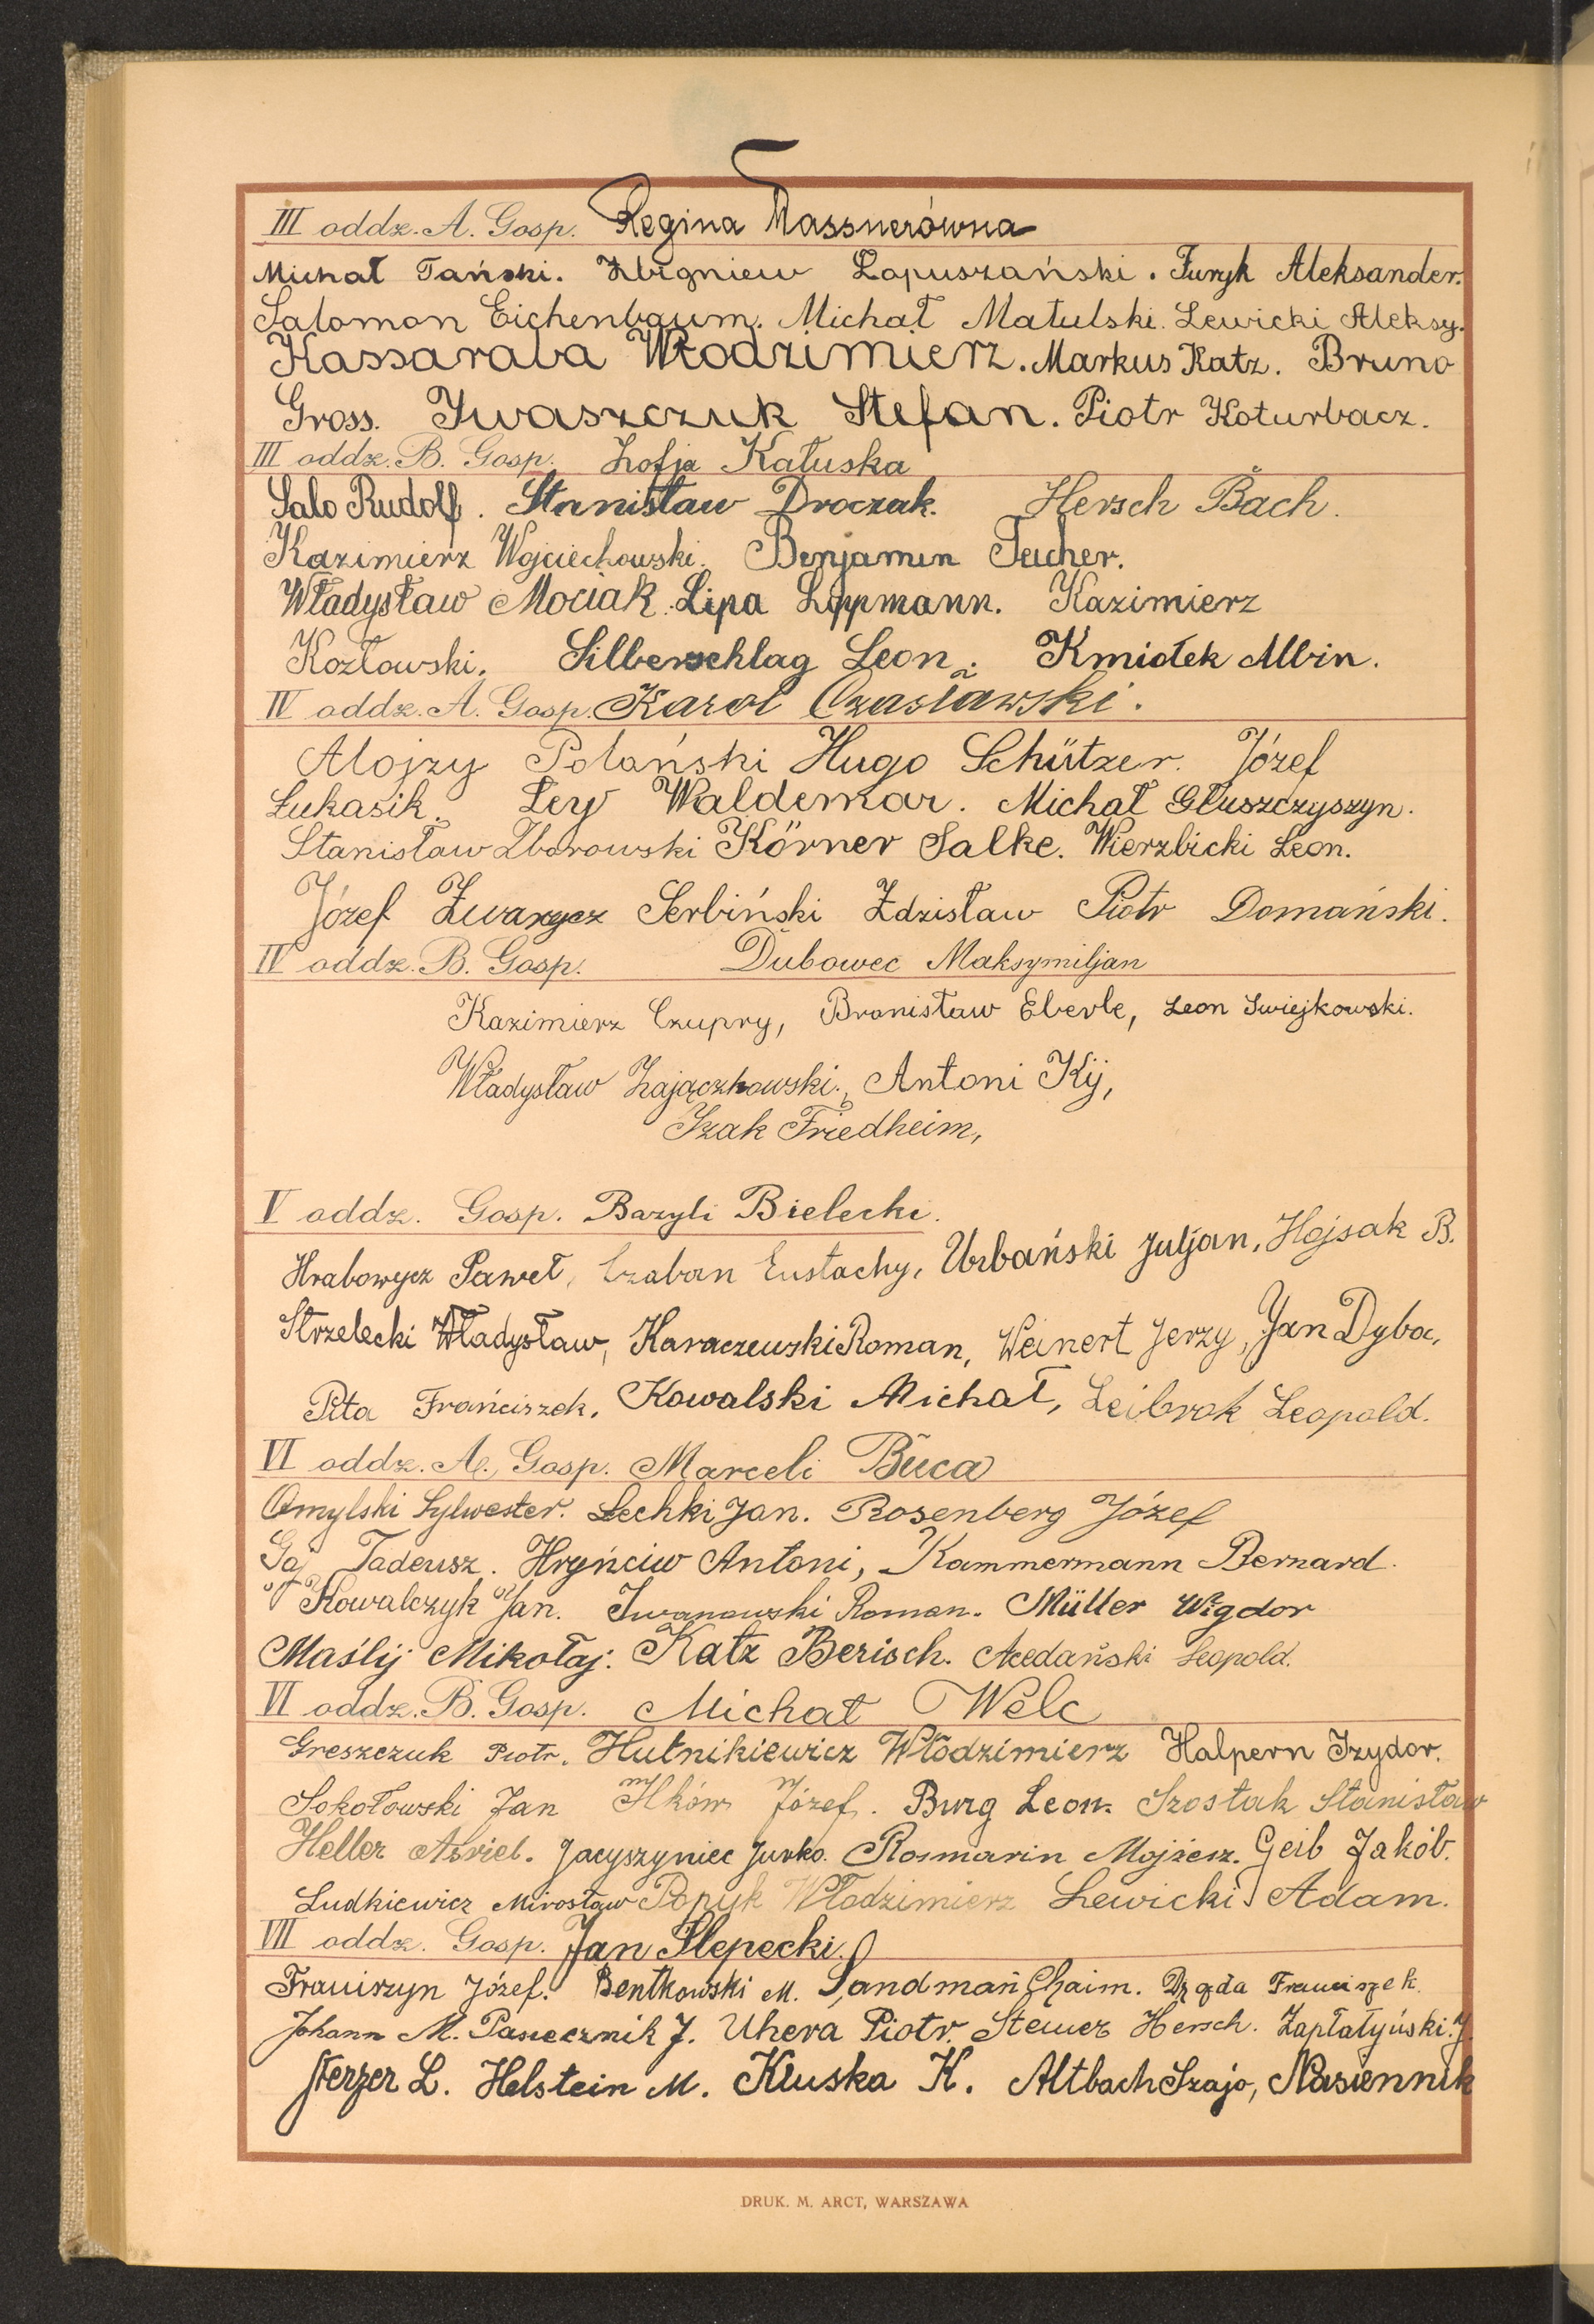 III oddz. A. Gosp. Regina Massnerówna
Michał Tański. Zbigniew Łapuszański. Furyk Aleksander.
Salomon Eichenbaum. Michał Matulski. Lewicki Aleksy.
Kassaraba Włodzimierz. Markus Katz. Bruno
Gross. Iwaszczuk Stefan. Piotr Koturbacz.
III oddz. B. Gosp. Zofja Kałuska
Salo Rudolf. Stanisław Droczak. Hersch Bach.
Kazimierz Wojciechowski. Benjamin Tucher.
Władysław Mociak. Lipa Lippmann. Kazimierz
Kozłowski. Silberschlag Leon. Kmiotek Albin.
IV oddz. A. Gosp. Karol Czasławski.
Alojzy Polański Hugo Schützer. Józef
Łukasik. Ley Waldemar. Michał Głuszczyszyn.
Stanisław Zborowski Körner Salke. Wierzbicki Leon.
Józef Zwarycz Serbiński Zdzisław Piotr Domański.
IV oddz. B. Gosp. Dubowec Maksymiljan
Kazimierz Czupry, Bronisław Eberle, Leon Swiejkowski.
Władysław Zajączkowski, Antoni Kij,
Izak Friedheim,
V oddz. Gosp. Bazyli Bielecki.
Hrabowycz Paweł, Czaban Eustachy, Urbański Juljan, Hojsak B.
Strzelecki Władysław, Karaczewski Roman, Weinert Jerzy, Jan Dyba,
Pita Franciszek, Kowalski Michał, Leibrok Leopold.
VI oddz. A. Gosp. Marceli Buca
Omylski Sylwester. Lechki Jan. Rosenberg Józef
Gaj Tadeusz. Hryńciw Antoni, Kammermann Bernard.
Kowalczyk Jan. Iwanowski Roman. Müller Wigdor
Maślij Mikołaj. Katz Berisch. Leopold.
VI oddz. B. Gosp. Michał Welc
Greszczuk Piotr. Hutnikiewicz Włodzimierz Halpern Izydor.
Sokołowski Jan Ilków Józef. Burg Leon. Szostak Stanisław
Heller Asriel. Jacyszyniec Jurko. Rosmarin Mojżesz. Geib Jakób.
Ludkiewicz Mirosław Popyk Włodzimierz Lewicki Adam.
VII oddz. Gosp. Jan Slepecki.
Józef. Bentkowski M. Sandman Chaim. Franciszek.
Johann M. Pasiecznik J. Uhera Piotr. Hersch. Zapłatyński J.
L. Helstein M. Kluska K. Altbach Szajo, Nasiennik
DRUK. M. ARCT, WARSZAWA